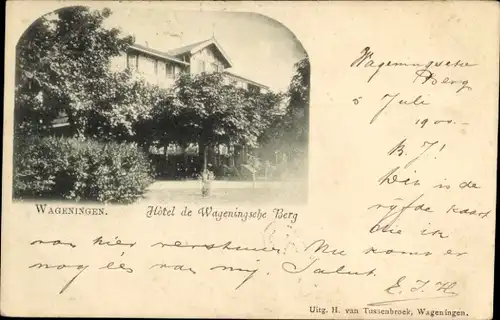 Wageningsche
Berg
5 Juli
1900.
B. J!
Dit is de
vijfde kaart
die ik
WAGENINGEN.
Hôtel de Wageningsche Berg
van hier verstuur. Nu komt er
nog één van mij. Saluut
E. J. H.
Uitg. H. van Tussenbroek, Wageningen.